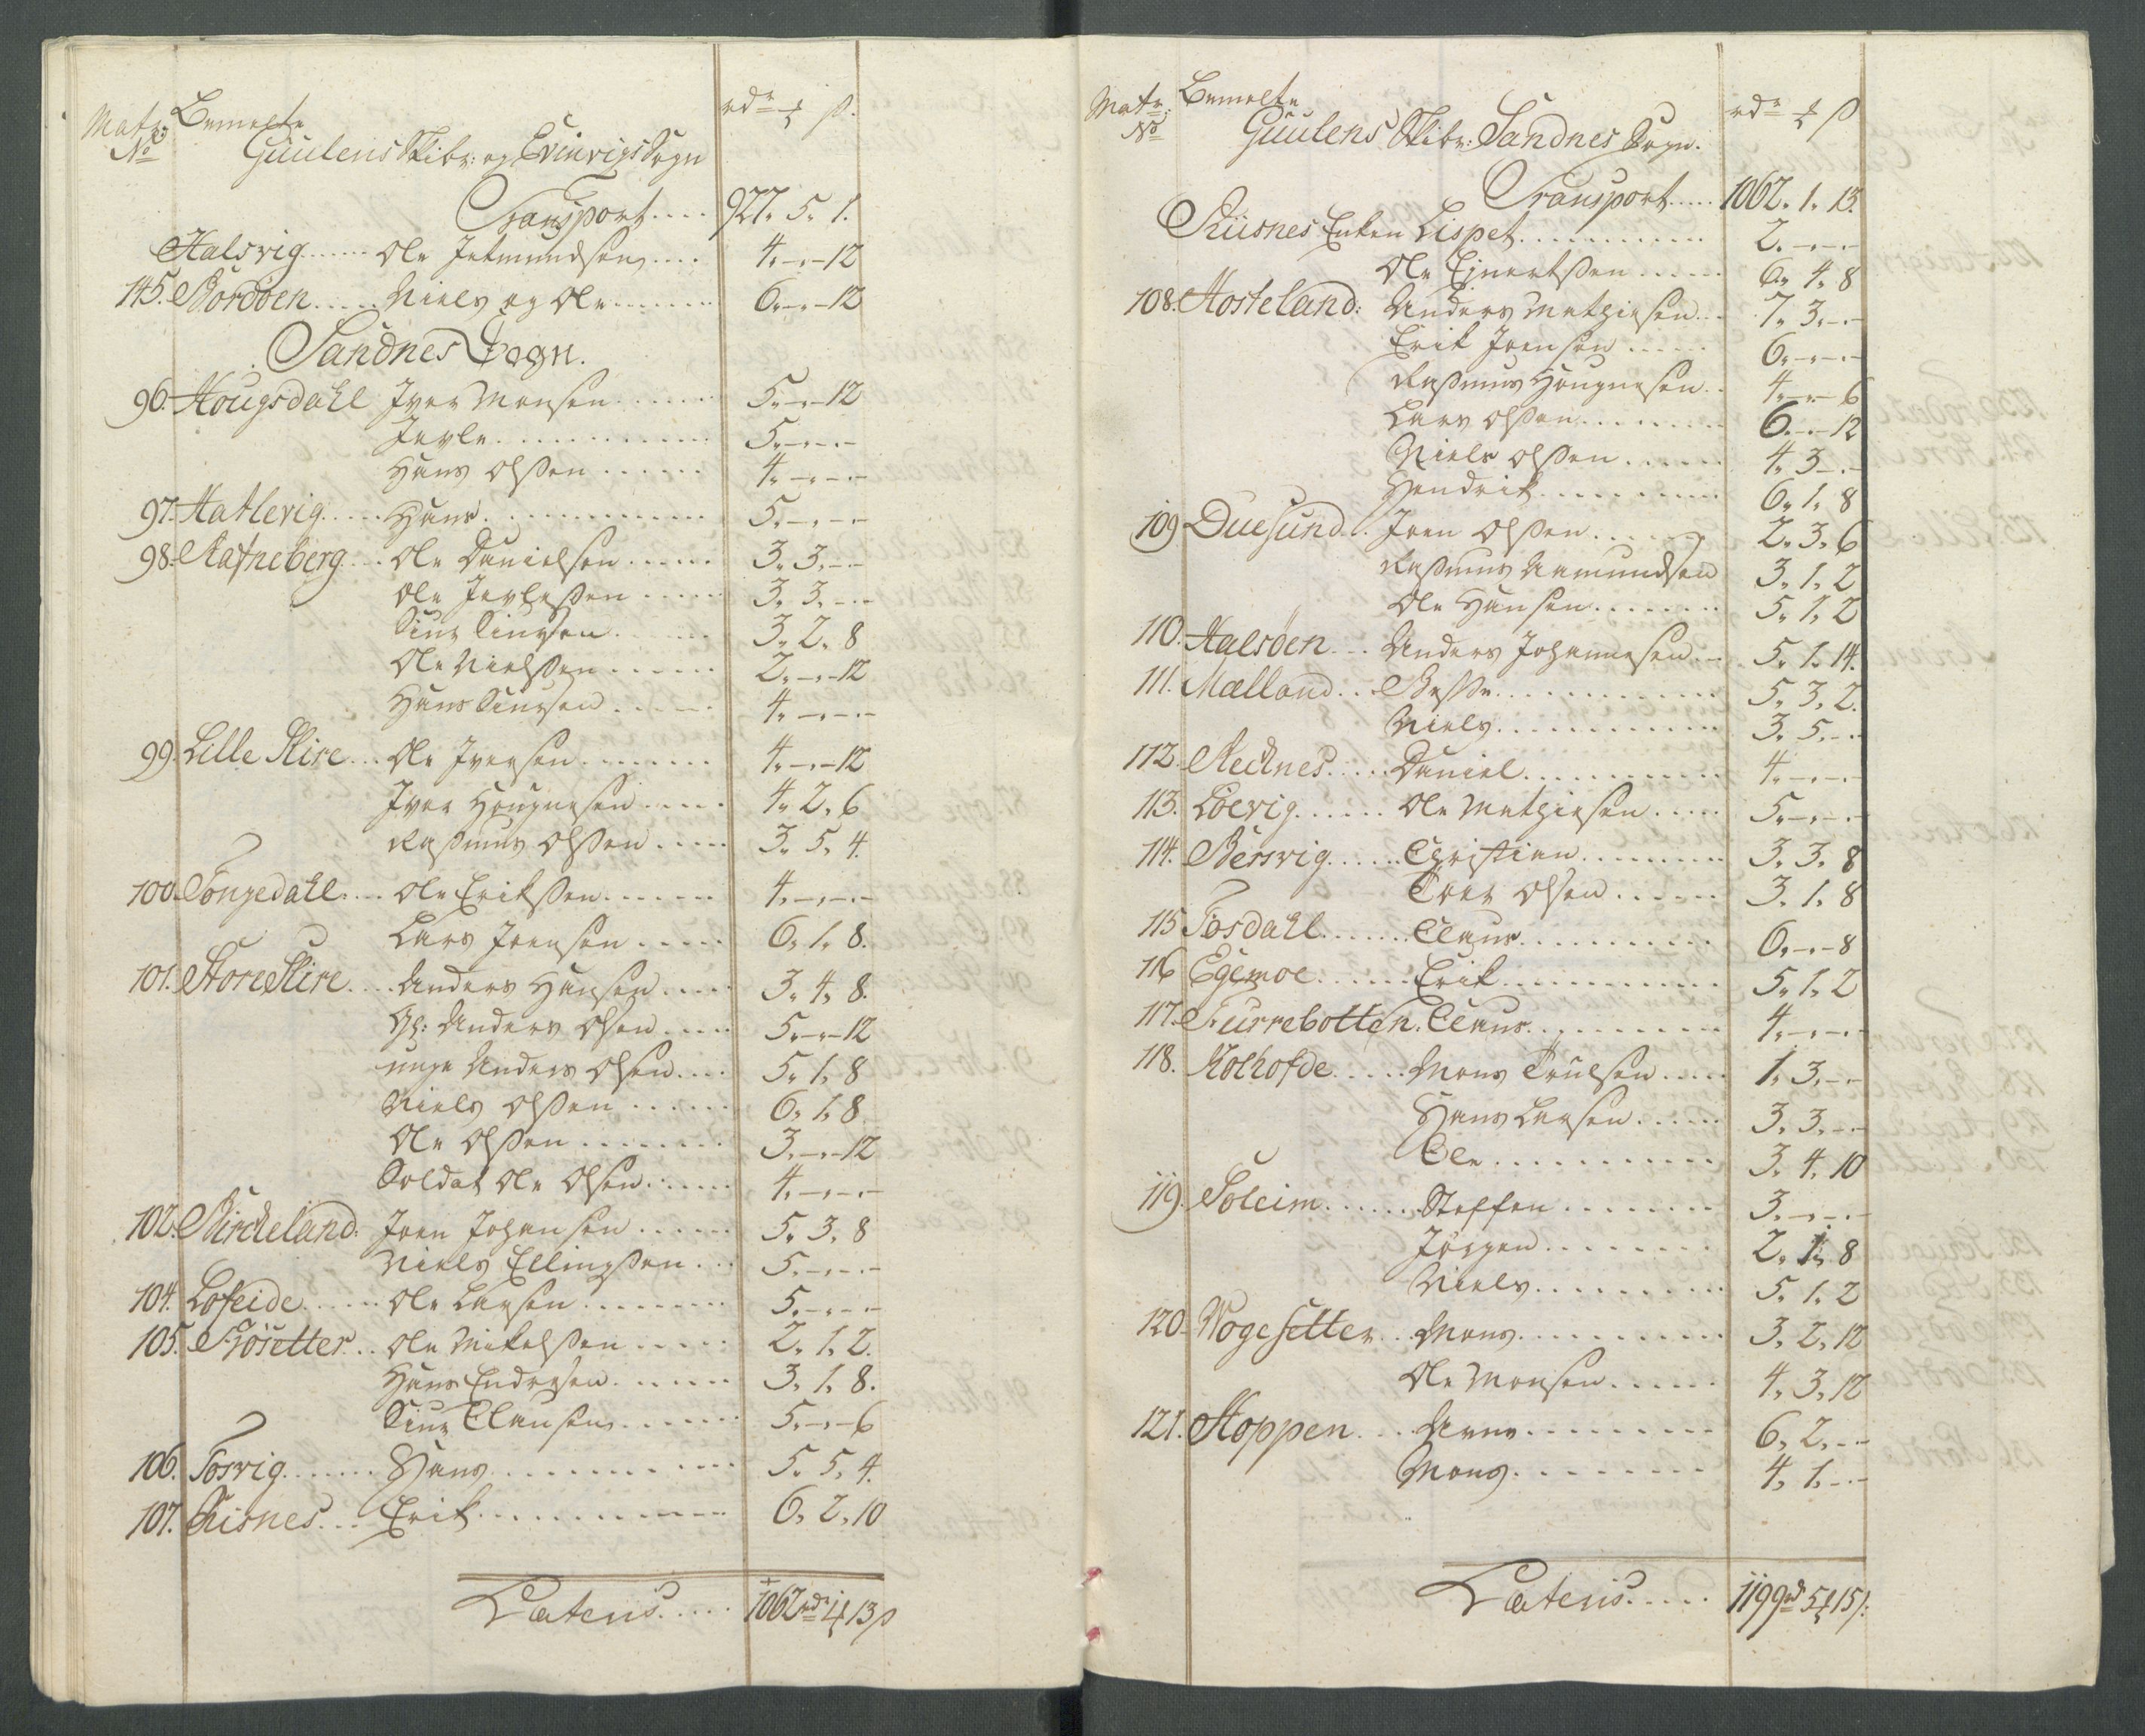 Matr: Bemelte rdr ß.
No Guulens Skibr: og Evinvigs Sogn
Transport.... 927. 5. 1.
Halsvig...... Ole Jetmundsen.... 4. -. -12
145. Nordöen..... Niels og Ole...... 6. -. -12
Sandnes Sogn.
96. Hougsdahl Iver Monsen...... 5. -. -12
Jevle............ 5. -. -. -
Hans Olßen...... 4. -. -. -
97. Hatlevig..... Hans............ 5. -. -. -
98. Ratneberg... Ole Danielsen..... 3. 3. -. -
Ole Jevleßen..... 3. 3. -. -
Siur Siursen...... 3. 2. 8
Ole Nielßen...... 2. -. -12
Hans Siursen..... 4. -. -. -
99. Lille Skire... Ole Iversen........ 4. -. -12
Iver Hougnesen..... 4. 2. 6
Raßmus Olßen..... 3. 5. 4.
100. Tongedahl.... Ole Erikßen....... 4. -. -. -
Lars Joensen..... 6. 1. 8.
101. Store Skire.... Anders Hansen..... 3. 4. 8.
Gl: Anders Olsen..... 5. -. -12
unge Anders Olsen.... 5. 1. 8
Niels Olßen...... 6. 1. 8
Ole Olßen........ 3. -. -12
Soldat Ole Olsen...... 4. -. -. -
102. Birckeland: Joen Johansen...... 5. 3. 8
Niels Ellingßen... 5. -. -. -
104. Lofeide..... Ole Larsen........ 5. -. -. -
105. Frösetter.. Ole Mikelßen..... 2. 1. 2.
Hans Endresen...... 3. 1. 8.
Siur Clausen...... 5. -. -6
106. Tosvig....... Hans............ 5. 5. 4.
107. Risnes... Erik............ 6. 2. 10
Lateris..... 1062 rdr 1 13 ß
Matr: Bemelte rdr ß
No Guulens Skibr: Sandnes Sogn.
Transport..... 1062. 1. 13.
Riisnes Enken Lispet........... 2. -. -. -
Ole Ejnertßen...... 6. 4. 8
108. Hosteland: Anders Metgiesen... 7. 3. -. -
Erik Joensen..... 6. -. -. -
Raßmus Hougnesen.. 4. -. -. 6
Lars Olßen........ 6. -. -12
Niels Olßen...... 4. 3 -. -
Hendrik......... 6. 1. 8
109 Duesund.. Joen Olßen...... 2. 3. 6
Raßmus Aamundsen 3. 1. 2
Ole Hansen....... 5. 1. 2
110. Halsöen... Anders Johannesen... 5. 1. 14.
111. Mælland... Beße............ 5. 3. 2.
Niels............ 3. 5. -. -
112. Recknes..... Daniel........... 4. -. -. -
113. Löevig...... Ole Metgiesen..... 5. -. -. -
114. Bersvig...... Christian........ 3. 3. 8
Troer Olsen...... 3. 1. 8
115 Tosdahl....... Claus........... 6. -. -8
116 Egemoe...... Erik............ 5. 1. 2
117. Furrebotten. Claus.......... 4. -. -. -
118. Kolhofde..... Mons Trulsen..... 1. 3. -. -
Hans Larsen...... 3. 3. -. -
Ole............ 3. 4. 10
119. Soleim...... Steffen........ 3. -. -. -
Jörgen........ 2. 1. 8
Niels.......... 5. 1. 2
120. Vogesetter.. Mons........... 3. 2. 12
Ole Monsen...... 4. 3. 12
121. Hoppen... Arne......... 6. 2. -. -
Mons......... 4. 1. -. -
Lateris..... 1199 rd 5 15 ß: